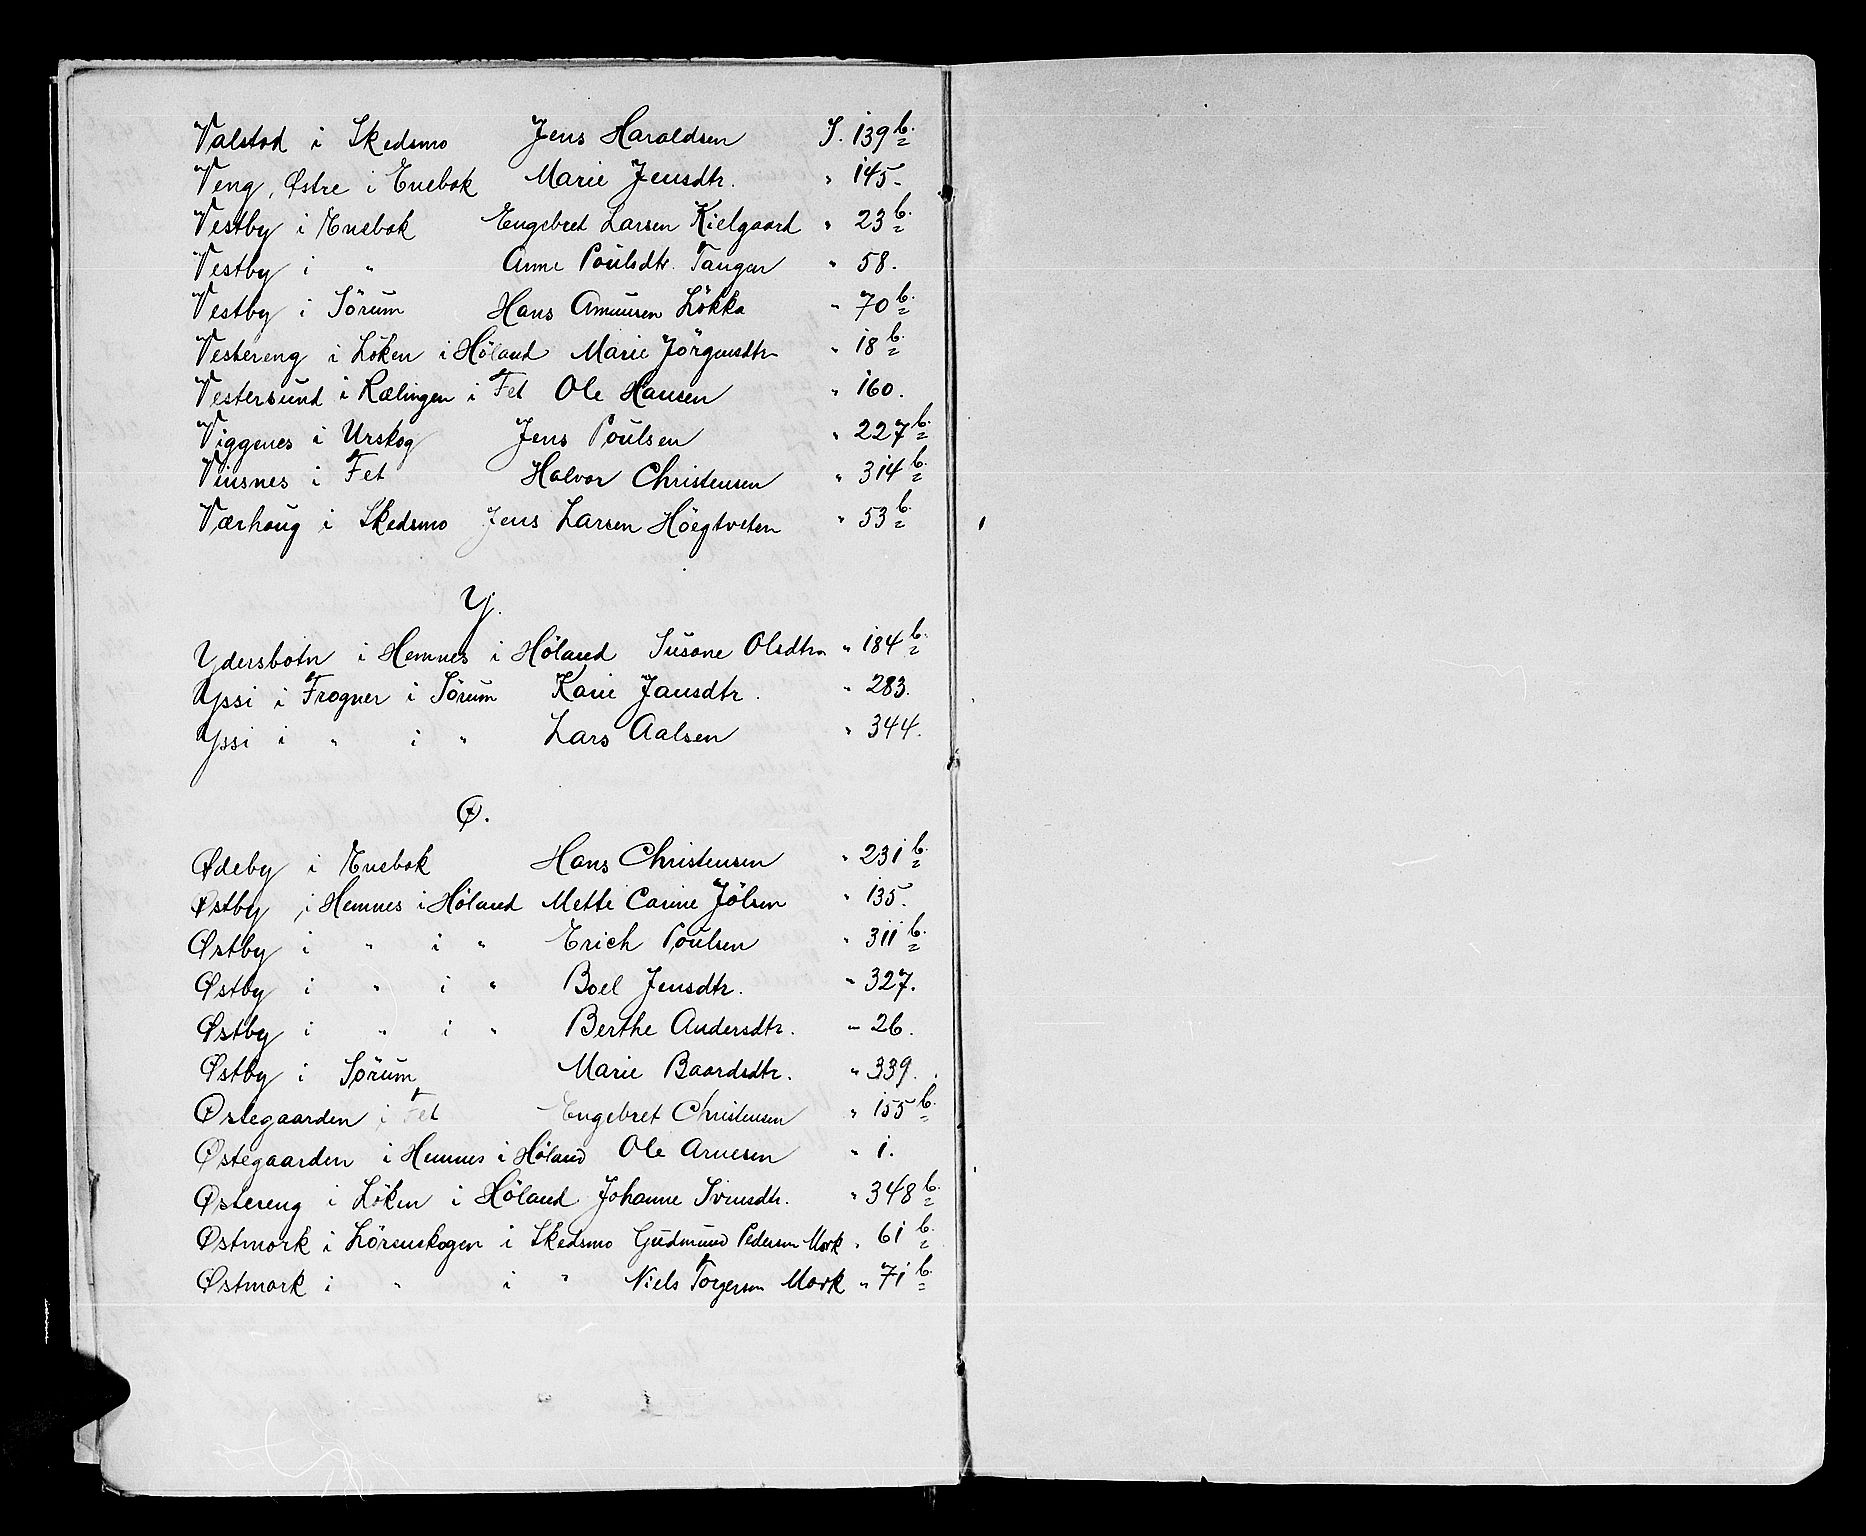 Valstad i Skedsmo Jens Haraldsen S. 139 b.
Veng, Østre i Enebak Marie Jensdtr. " 145.
Vestby i Enebak Engebret Larsen Kielgaard " 23 b.
Vestby i " Anne Poulsdtr. Tangen " 58.
Vestby i Sørum Hans Amunsen Løkka " 70 b.
Vestereng i Løken i Høland Marie Jørgensdtr " 18 b.
Vestersund i Rælingen i Fet Ole Hansen " 160.
Viggenes i Urskog Jens Poulsen " 227 b.
Vinsnes i Fet Halvor Christensen " 314 b.
Værhoug i Skedsmo Jens Larsen Høegtveten " 53 b.
Y.
Ydersbotn i Hemnes i Høland Susane Olsdtr " 184 b.
Yssi i Frogner i Sørum Karie Jansdtr. " 283.
Yssi i " i " Lars Aalsen " 344.
Ø.
Ødeby i Enebak Hans Christensen " 231 b.
Østby i Hemnes i Høland Mette Carine Jølsen " 135.
Østby i " i " Erich Poulsen " 311 b.
Østby i " i " Boel Jensdtr. " 327.
Østby i " i " Berthe Andersdtr. " 26.
Østby i Sørum Marie Baardsdtr. " 339.
Østegaarden i Fet Engebret Christensen " 155 b.
Østegaarden i Hemnes i Høland Ole Arnesen " 1.
Østereng i Løken i Høland Johanne Svensdtr. " 348 b.
Østmork i Lørenskogen i Skedsmo Gudmund Pedersen Mork " 61 b.
Østmork i " i " Niels Torgersen Mork " 71 b.